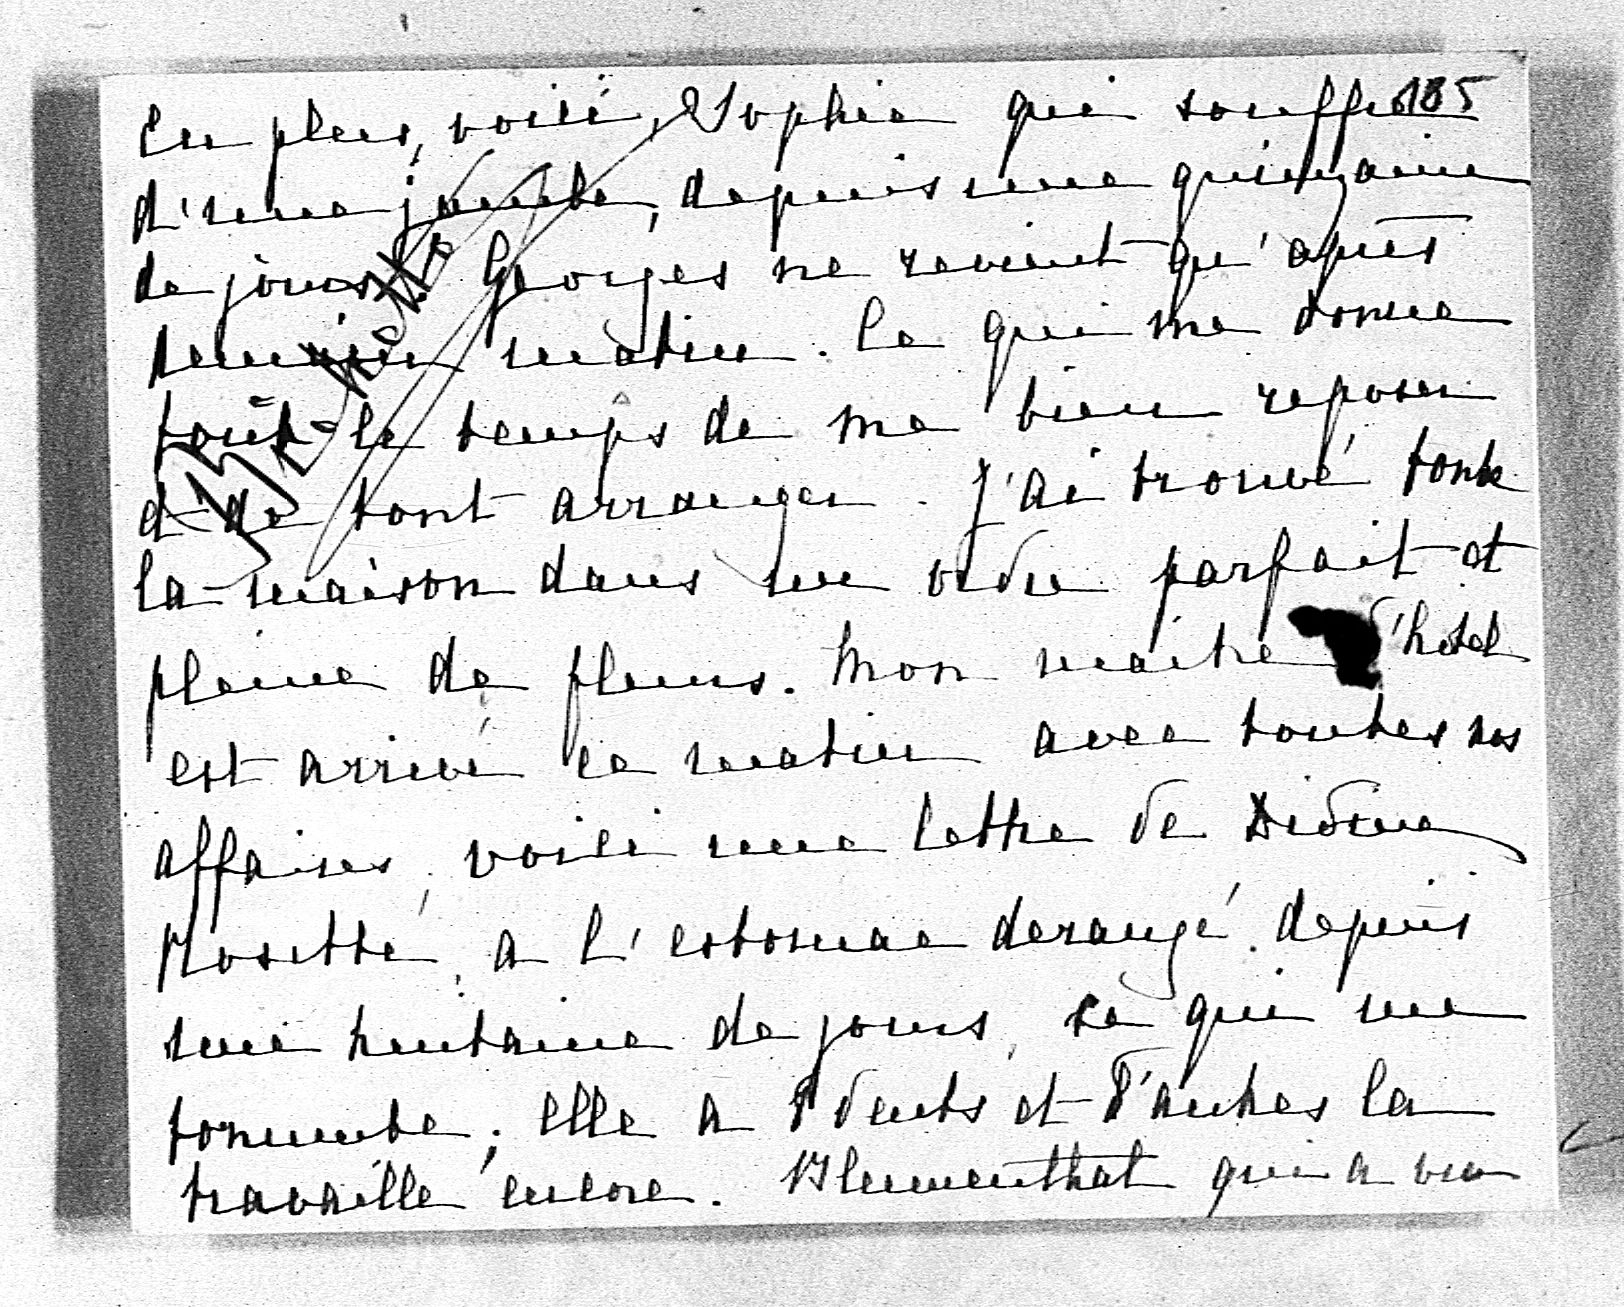 185
En plus, voilà Sophie qui souffre
d'une jambe, depuis une quinzaine
de jours. Georges ne revient qu'après
demain matin. Ce qui me donne
tout le temps de me bien reposer
et de tout arranger. J'ai trouvé toute
la maison dans un ordre parfait et
pleine de fleurs. Mon maître d'hôtel
est arrivé ce matin avec toutes nos
affaires, voilà une lettre de Didine
Mosette, a l'estomac derangé. depuis
une huitaine de jours, ce qui me
tourmente; elle a 8 dents et d'autres la
travaille encore. Blumenthal qui a vu